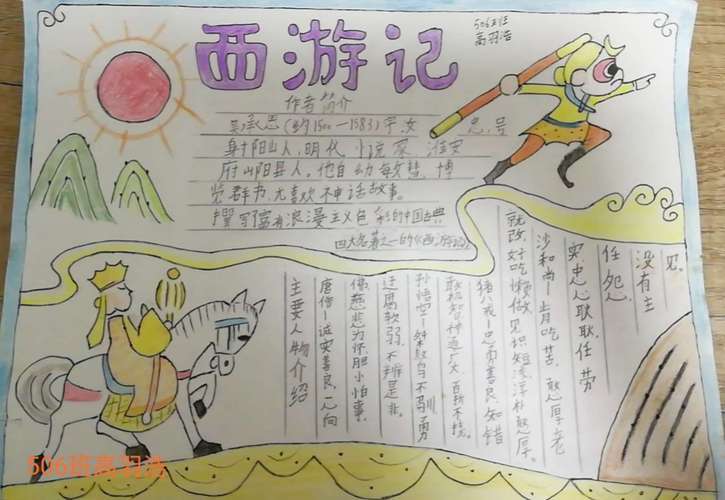 西游记
506班
高羽浩
作者简介
吴承恩(约1500—1583)字汝忠,号
射阳山人,明代小说家,淮安
府山阳县人,他自幼敏慧,博
览群书,尤喜欢神话故事。
撰写富有浪漫主义色彩的中国古典
四大名著之一的《西游记》
主要人物介绍
唐僧—诚实善良,一心向
佛,慈悲为怀,胆小怕事,
迂腐软弱,不辨是非。
孙悟空—桀骜不驯,勇
敢机智,神通广大,百折不挠。
猪八戒—忠勇善良,知错
就改,好吃懒做,见识短浅,淳朴憨厚。
沙和尚—肯吃苦,憨厚老
实,忠心耿耿,任劳
任怨,
没有主
见。
506班高羽浩